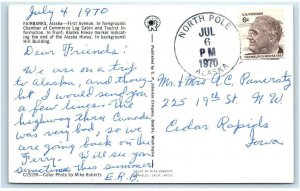 July 4 1970
FAIRBANKS, Alaska—First Avenue. In foreground
Chamber of Commerce Log Cabin and Tourist In-
formation. In front: Alaska Hiway marker indicat-
ing end of the Alaska Hiway. In background
Hill Building.
Dear Friends:
We are on a trip
to Alaska, and thought
I would send you a
few lines. The
highway thru Canada
was very bad, so we
are going back on the
Ferry. Will see you
sometime this summer
E.R.B.
C15199—Color Photo by Mike Roberts
NORTH POLE
JUL
6
PM
1970
ALASKA
6¢ U.S. POSTAGE
FRANKLIN D. ROOSEVELT
Mr. & Mrs. A.C. Pancratz
225 19th St. N W
Cedar Rapids
Iowa